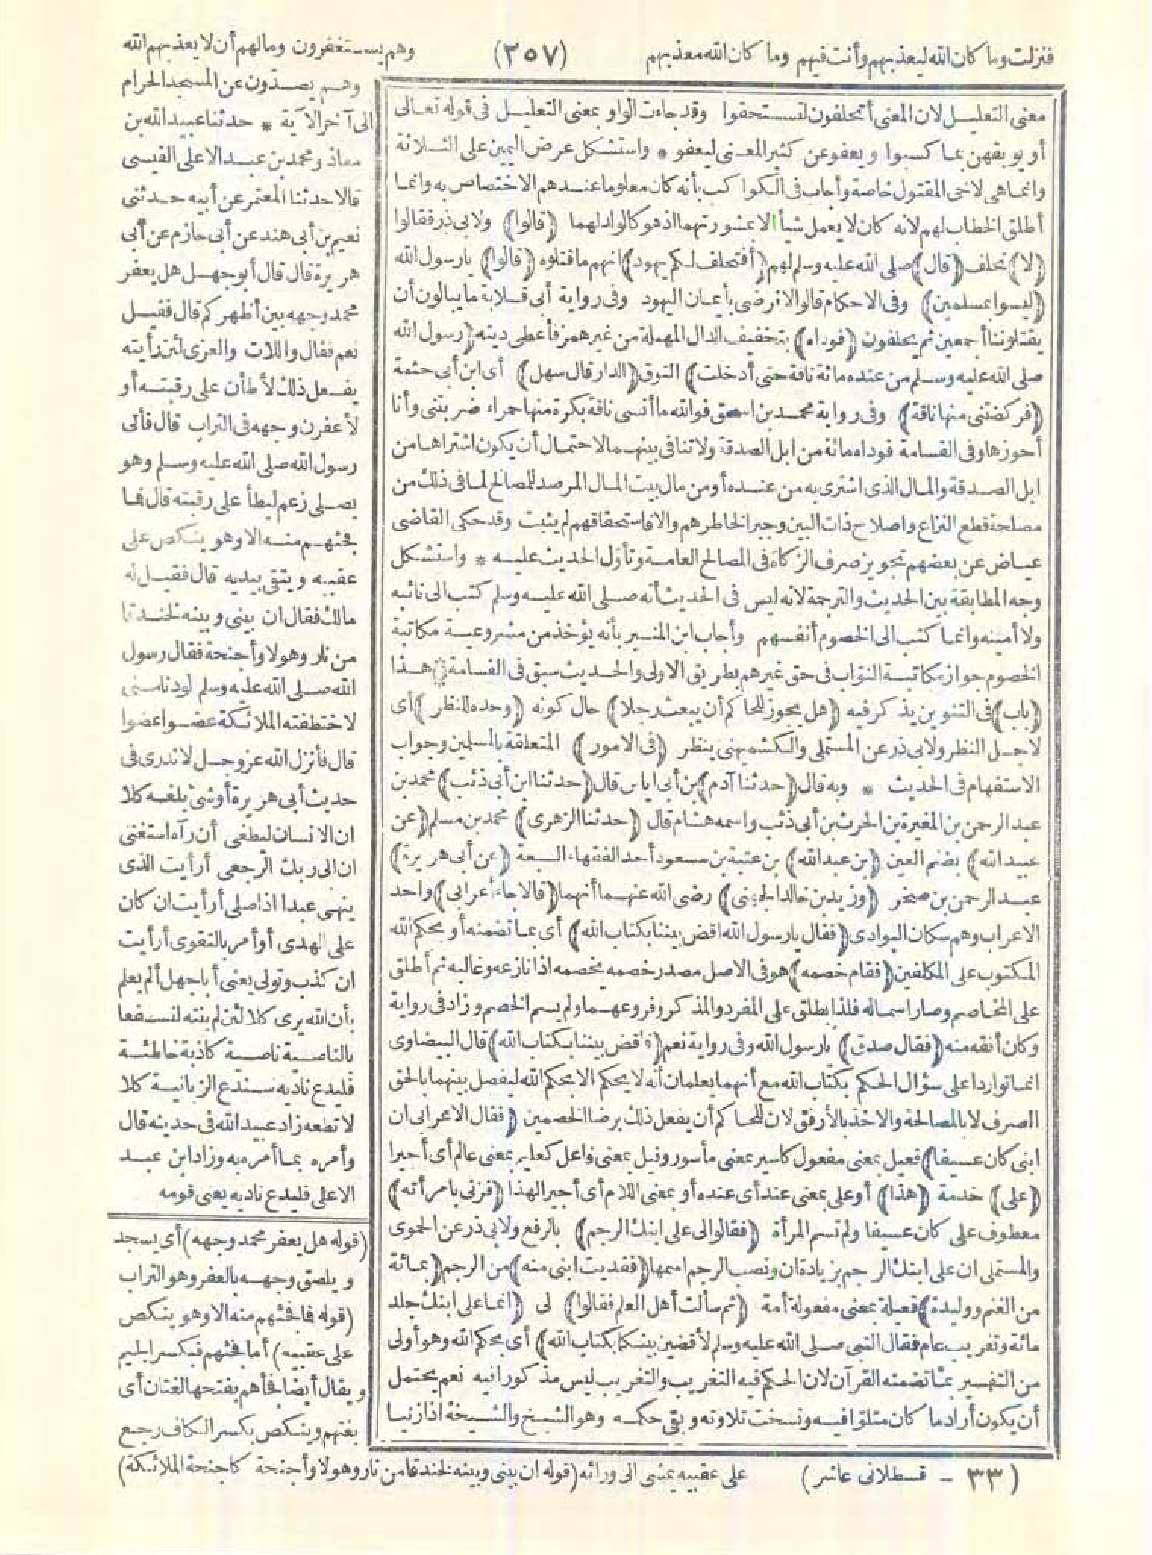 فنزلت وما كان الله ليعذبهم وأنت فيهم وما كان الله معذبهم (٢٥٧) وهم يستغفرون ومالهم أن لا يعذبهم الله
معنى التعليل لان المعنى أتحلفون لتستحقوا وقد جاءت الواو بمعنى التعليل فى قوله تعالى
أو يوبقهن بما كسبوا ويعفو عن كثير المعنى ليعفو * واستشكل عرض اليمين على الثلاثة
وانما هى لاخى المقتول خاصة وأجاب فى الكواكب بأنه كان معلوما عندهم الاختصاص به وانما
أطلق الخطاب لهم لانه كان لا يعمل شيأ الا بمشورتهما اذ هو كالولد لهما (قالوا) ولابى ذر فقالوا
(لا) نحلف (قال) صلى الله عليه وسلم لهم (أفتحلف لكم يهود) انهم ما قتلوه (قالوا) يارسول الله
(ليسوا بمسلمين) وفى الاحكام قالوا لا نرضى بأيمان اليهود وفى رواية أبى قلابة ما يبالون أن
يقتلوننا أجمعين ثم يحلفون (فوداه) بتخفيف الدال المهملة من غير همز فأعطى ديته (رسول الله
صلى الله عليه وسلم من عنده مائة ناقة حتى أدخلت) النوق (الدار قال سهل) أى ابن أبى حثمة
(فركضتنى منها ناقة) وفى رواية محمد بن اسحق فوالله ما أنسى ناقة بكرة منها حمراء ضربتنى وأنا
أحوزها وفى القسامة فوداه مائة من ابل الصدقة ولا تنافى بينهما لاحتمال أن يكون اشتراها من
ابل الصدقة والمال الذى اشترى به من عنده أو من مال بيت المال المرصد للمصالح لما فى ذلك من
مصلحة قطع النزاع واصلاح ذات البين وجبر الخاطرهم والا فاستحقاقهم لم يثبت وقد حكى القاضى
عياض عن بعضهم تجويز صرف الزكاة فى المصالح العامة وتأول الحديث عليه * واستشكل
وجه المطابقة بين الحديث والترجمة لانه ليس فى الحديث أنه صلى الله عليه وسلم كتب الى نائبه
ولا أمينه وانما كتب الى الخصوم أنفسهم وأجاب ابن المنير بأنه يؤخذ من مشروعية مكاتبة
الخصوم جواز مكاتبة النواب فى حق غيرهم بطريق الاولى والحديث سبق فى القسامة هذا
(باب) فى التنوين يذكر فيه (هل يجوز للحاكم أن يبعث رجلا) حال كونه (وحده للنظر) أى
لاجل النظر ولابى ذر عن المستملى والكشميهنى ينظر (فى الامور) المتعلقة بالمسلمين وجواب
الاستفهام فى الحديث * وبه قال (حدثنا آدم) بن أبى اياس قال (حدثنا ابن أبى ذئب) محمد بن
عبد الرحمن بن المغيرة بن الحرث بن أبى ذئب واسمه هشام قال (حدثنا الزهرى) محمد بن مسلم (عن
عبيد الله) بضم العين (بن عبد الله) بن عتبة بن مسعود أحد الفقهاء السبعة (عن أبى هريرة)
عبد الرحمن بن صخر (وزيد بن خالد الجهنى) رضى الله عنهما أنهما (قالا جاء أعرابى) واحد
الاعراب وهم سكان البوادى (فقال يارسول الله اقض بيننا بكتاب الله) أى بما تضمنه أو بحكم الله
المكتوب على المكلفين (فقام خصمه) هو فى الاصل مصدر خصمه يخصمه اذا نازعه وغالبه ثم أطلق
على المخاصم وصار اسما له فلذا يطلق على المفرد والمذكر وفروعهما ولم يسم الخصم وزاد فى رواية
وكان أفقه منه (فقال صدق) يارسول الله وفى رواية نعم (فاقض بيننا بكتاب الله) قال البيضاوى
انما تواردا على سؤال الحكم بكتاب الله مع أنهما يعلمان أنه لا يحكم الا بحكم الله ليفصل بينهما بالحق
الصرف لا بالمصالحة والاخذ بالأرفق لان للحاكم أن يفعل ذلك برضا الخصمين (فقال الاعرابى ان
ابنى كان عسيفا) فعيل بمعنى مفعول كاسير بمعنى مأسور وقيل بمعنى فاعل كعليم بمعنى عالم أى أجيرا
(على) خدمة (هذا) أو على بمعنى عند أى عنده أو بمعنى اللام أى أجير الهذا (فزنى بامرأته)
معطوف على كان عسيفا ولم تسم المرأة (فقالوا لى على ابنك الرجم) بالرفع ولابى ذر عن الحموى
والمستملى ان على ابنك الرجم بزيادة ان ونصب الرجم اسمها (ففديت ابنى منه) من الرجم (بمائة
من الغنم ووليدة) فعيلة بمعنى مفعولة أمة (ثم سألت أهل العلم فقالوا) لى (انما على ابنك جلد
مائة وتغريب عام فقال النبى صلى الله عليه وسلم لأقضين بينكما بكتاب الله) أى بحكم الله وهو أولى
من التفسير بما تضمنه القرآن لان الحكم فيه التغريب والتغريب ليس مذكورا فيه نعم يحتمل
أن يكون أراد ما كان متلوا فيه ونسخت تلاوته وبقى حكمه وهو الشيخ والشيخة اذا زنيا
وهم يصدون عن المسجد الحرام
الى آخر الآية * حدثنا عبيد الله بن
معاذ ومحمد بن عبد الاعلى القيسى
قالا حدثنا المعتمر عن أبيه حدثنى
نعيم بن أبى هند عن أبى حازم عن أبى
هريرة قال قال أبو جهل هل يعفر
محمد وجهه بين أظهركم قال فقيل
نعم فقال واللات والعزى لئن رأيته
يفعل ذلك لأطأن على رقبته أو
لأعفرن وجهه فى التراب قال فأتى
رسول الله صلى الله عليه وسلم وهو
يصلى زعم ليطأ على رقبته قال فما
فجئهم منه الا وهو ينكص على
عقبيه ويتقى بيديه قال فقيل له
مالك فقال ان بينى وبينه لخندقا
من نار وهولا وأجنحة فقال رسول
الله صلى الله عليه وسلم لو دنا منى
لاختطفته الملائكة عضوا عضوا
قال فأنزل الله عز وجل لا ندرى فى
حديث أبى هريرة أو شئ بلغه كلا
ان الانسان ليطغى أن رآه استغنى
ان الى ربك الرجعى أرأيت الذى
ينهى عبدا اذا صلى أرأيت ان كان
على الهدى أو أمر بالتقوى أرأيت
ان كذب وتولى يعنى أبا جهل ألم يعلم
بأن الله يرى كلا لئن لم ينته لنسفعا
بالناصية ناصية كاذبة خاطئة
فليدع ناديه سندع الزبانية كلا
لا تطعه زاد عبيد الله فى حديثه قال
وأمره بما أمره به وزاد ابن عبد
الاعلى فليدع ناديه يعنى قومه
(قوله هل يعفر محمد وجهه) أى يسجد
ويلصق وجهه بالعفر وهو التراب
(قوله فما فجئهم منه الا وهو ينكص
على عقبيه) أما فجئهم فبكسر الجيم
ويقال أيضا فجأهم بفتحها لغتان أى
بغتهم وينكص بكسر الكاف رجع
على عقبيه يمشى الى ورائه (قوله ان بينى وبينه لخندقا من نار وهولا وأجنحة كأجنحة الملائكة)
(٣٣ - قسطلانى عاشر)